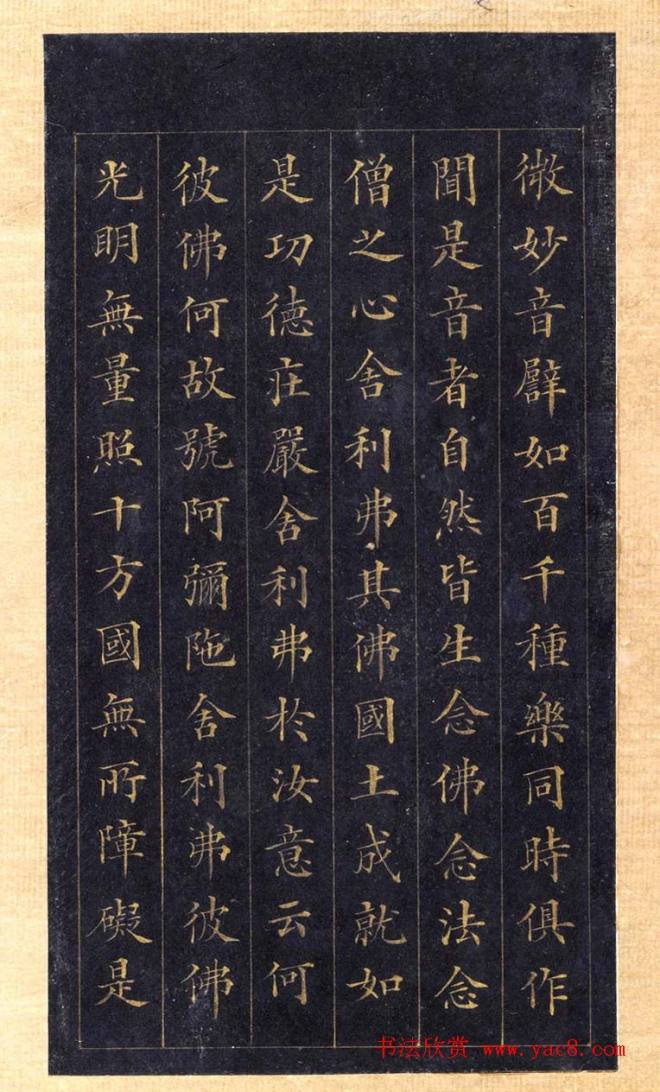 微妙音譬如百千種樂同時俱作
聞是音者自然皆生念佛念法念
僧之心舍利弗其佛國土成就如
是功德莊嚴舍利弗於汝意云何
彼佛何故號阿彌陁舍利弗彼佛
光明無量照十方國無所障礙是
书法欣赏 www.yac8.com